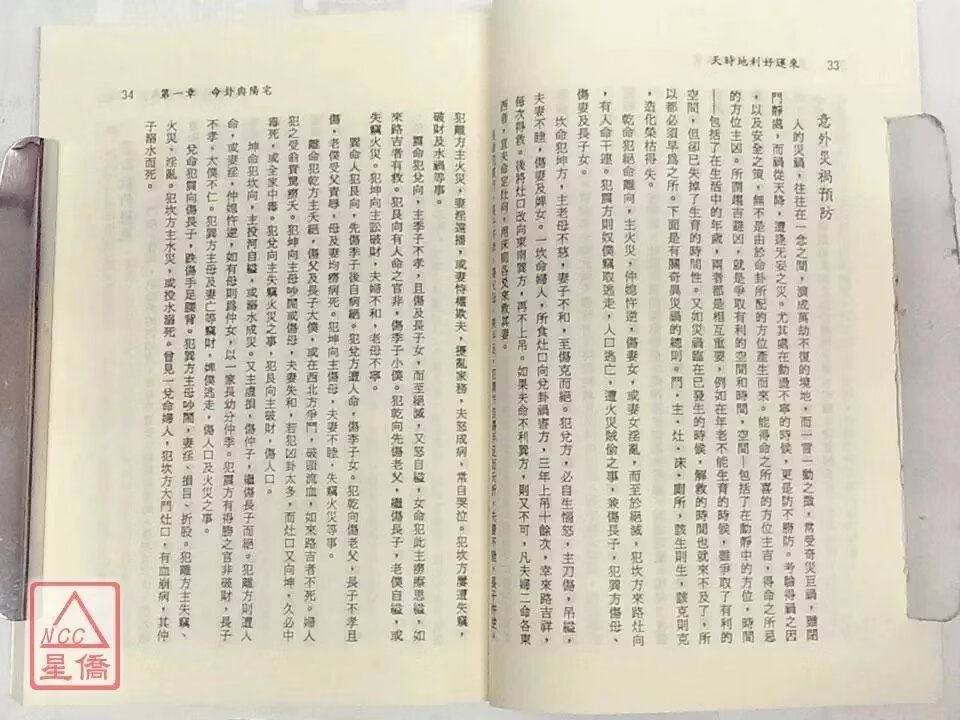 天時地利好運來
33
意外災禍預防
人的災禍，往往在一念之間，演成萬劫不復的境地，而一言一動之微，常受奇災巨禍，雖閉
門靜處，而禍從天降，遭逢无妄之災。尤其處在動盪不寧的時候，更是防不勝防。考驗得禍之因
，以及安全之策，無不是由於命卦所配的方位產生而來。能得命之所喜的方位主吉，得命之所忌
的方位主凶。所謂趨吉避凶，就是爭取有利的空間和時間，空間—包括了在動靜中的方位，時間
—包括了在生活中的年歲，兩者都是相互重要，例如在年老不能生育的時候，雖爭取了有利的
空間，但卻已失掉了生育的時間性。又如災禍臨在已發生的時候，解救的時間也就來不及了，所
以都必須早為之所。下面是有關奇異災禍的總則。門、主、灶、床、廁所，該生則生，該克則克
，造化榮枯得失。
乾命犯絕命離向，主火災，仲媳忤逆，傷妻女，或妻女淫亂，而至於絕滅，犯坎方來路灶向
，有人命干連。犯震方則奴僕竊取逃走，人口逃亡，遭火災賊偷之事，兼傷長子，犯巽方傷母、
傷妻及長子女。
坎命犯坤方，主老母不慈，妻子不和，至傷克而絕。犯兌方，必自生惱怒，主刀傷，吊縊，
夫妻不睦，傷妻及婢女。一坎命婦人，所食灶口向兌卦禍害方，三年上吊十餘次，幸來路吉祥，
每次得救。後將灶口改向東南巽方，再不上吊。如果夫命不利巽方，則又不可，凡夫婦二命各東
西者，宜夫命定灶向，用床廁各及來救其妻。
34
第一章　命卦與陽宅
犯離方主火災，妻淫遠播，或妻恃權欺夫，擾亂家務，夫怒成病，常自哭泣。犯坎方屢遭失竊，
破財及水禍等事。
震命犯兌向，主季子不孝，且傷及長子女，而至絕滅，又怒自縊，女命犯此主癆瘵思縊，如
來路吉者有救。犯艮向有人命之官非，傷季子小僕。犯乾向先傷老父，繼傷長子，老僕自縊，或
失竊火災。犯坤向主訟破財，夫婦不和，老母不寧。
巽命人犯艮向，先傷季子後自病絕。犯兌方遭人命，傷季子女。犯乾向傷老父，長子不孝且
傷，老僕受父責辱，母及妻均癆病死。犯坤向主傷母，夫妻不睦，失竊火災等事。
離命犯乾方主夭絕，傷父及長子大僕，或在西北方爭鬥，破頭流血，如來路吉者不死。婦人
犯之受翁責罵癆夭。犯坤向主母吵鬧或傷母，夫妻失和，若犯凶卦太多，而灶口又向坤，久必中
毒死，或全家中毒。犯兌向主失竊火災之事，犯艮向主破財，傷人口。
坤命犯坎向，主投河自縊，或溺水成災。又主虛損，傷仲子，繼傷長子而絕。犯離方則遭人
命，或妻淫，仲媳忤逆，如有母則為仲女，以一家長幼分仲季。犯震方有得勝之官非破財，長子
不孝，大僕不仁。犯巽方主母及妻亡等竊財，婢僕逃走，傷人口及火災之事。
兌命犯震向傷長子，跌傷手足腰背。犯巽方主母吵鬧，妻淫、損目、折股。犯離方主失竊、
火災、淫亂。犯坎方主水災，或投水溺死。曾見一兌命婦人，犯坎方大門灶口，有血崩病，其仲
子溺水而死。
NCC
星僑